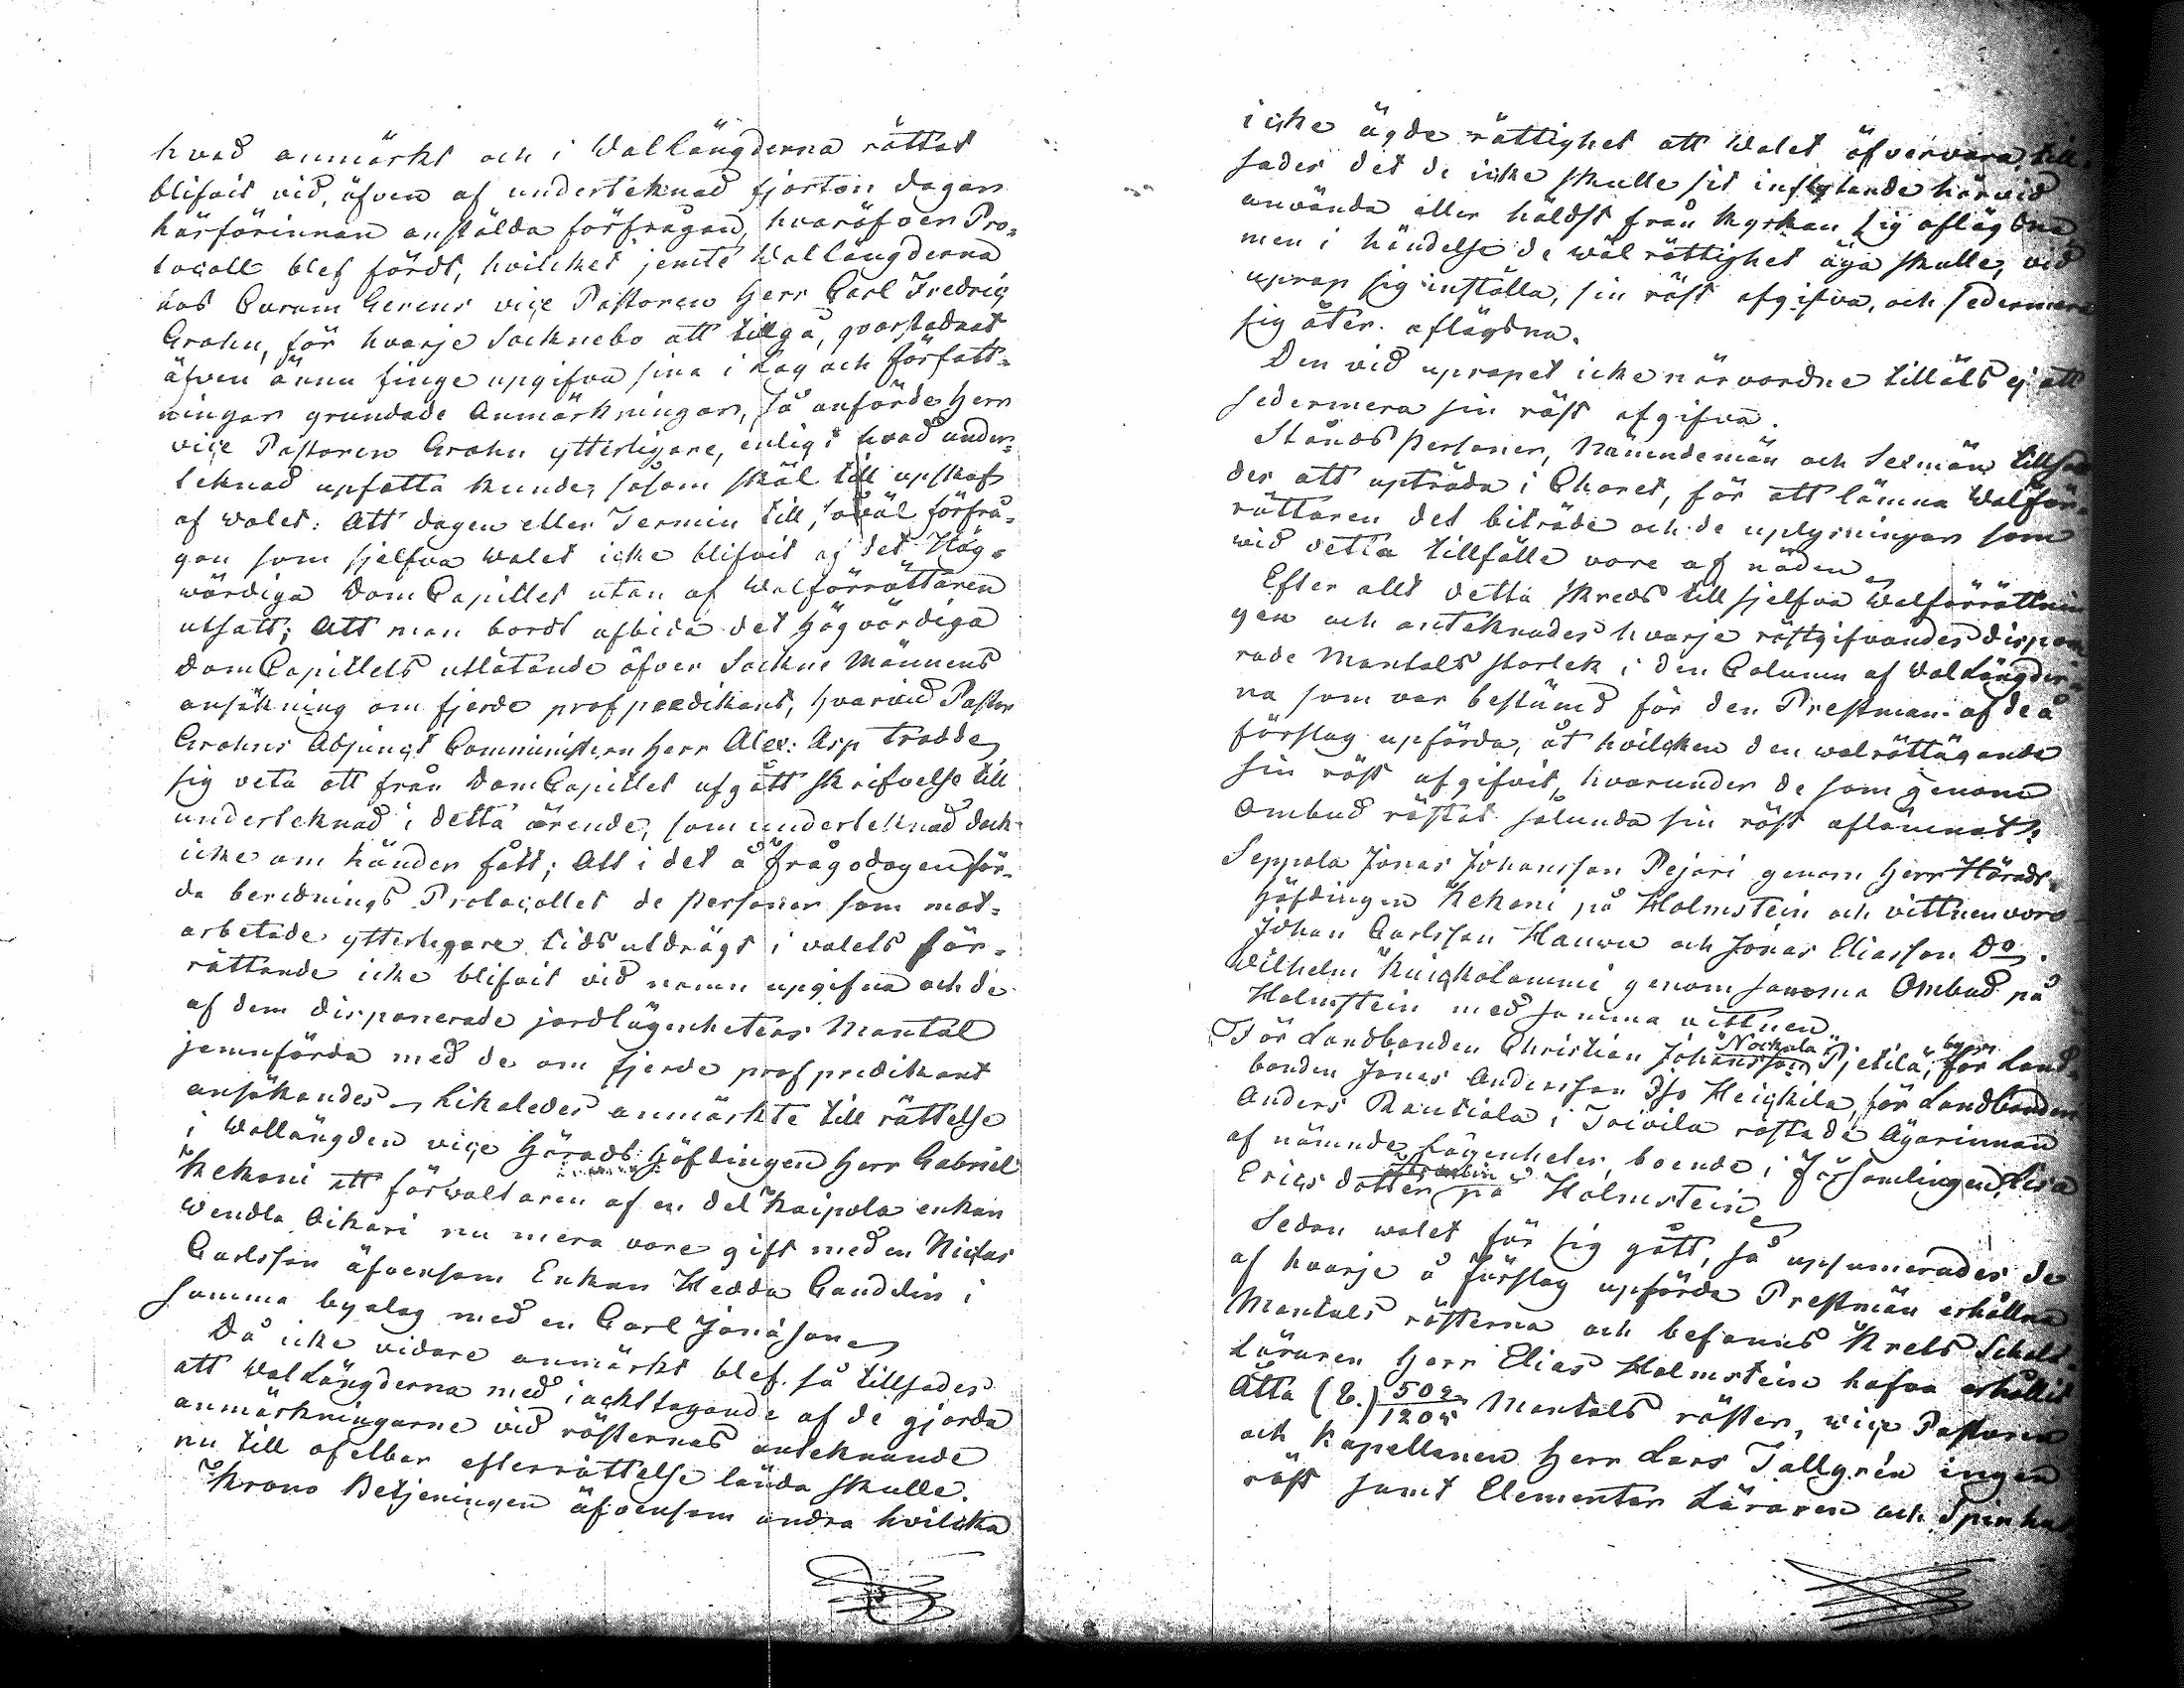 hvad anmärkt och i Wallängderna rättat
blifvit vid, äfven af undertecknad fjorton dagar
härförinnan anstälda förfrågan, hvaröfver Pro-
tocoll blef fördt, hvilcket jemte Wallängderna
hos Curam Gerens viçe Pastoren Herr Carl Fredric
Grahn, för hvarje Socknebo att tillgå, qvarstadnat
äfven ännu finge upgifva sina i Lag och författ-
ningar grundade Anmärkningar, Så anförde Herr
viçe Pastoren Grahn ytterligare, enligt hvad under-
teknad upfatta kunde, såsom skäl till upskof
af valet: Att dagen eller Termin till, såväl förfrå-
gan som sjelfva walet icke blifvit af det Hög-
wördiga Dom Capitlet utan af Walförrättaren
utsatt; Att man bordt afbida det Högvördiga
Dom Capitlets utlåtande öfver Sockne Männens
ansökning om fjerde profpredikant, hvarvid Pastor
Grahns Adjungt Comministern Herr Alex: Asp trodde
sig veta att från Dom Capitlet afgått skrifvelse till
underteknad i detta ärende, som underteknad dock
icke om händer fått; Att i det å frågodagen för-
da berednings Protocollet de personer som mot-
arbetade ytterligare tidsutdrägt i valets för-
rättande icke blifvit vid namn upgifna och de
af dem disponerade jordlägenheters Mantal
jemnförda med de om fjerde profpredikant
ansökandes. Likaledes anmärkte till rättelse
i Wallängden viçe Härads Höfdingen Herr Gabriel
Kekoni att förvaltaren af en del Kaipola enkan
Wendla Oikari nu mera vore gift med en Niclas
Carlsson äfvensom Enkan Hedda Gauddin i
samma byalag med en Carl Jonasson
Då icke vidare anmärkt blef. så tillsades
att Wallängderna med iackttagande af de gjorda
anmärkningarne vid rösternas anteknande
nu till ofelbar efterrättelse lända skulle.
Krono Betjeningen äfvensom andra hvilcka
icke ägde rättighet att Walet öfvervara till-
sades det de icke skulle sit inflytande härvid
använda eller häldst från kyrkan sig aflägsna
men i händelse de wäl rättighet äga skulle, vid
uprop sig inställa, sin röst afgifva, och sedermera
sig åter aflägsna.
Den vid upropet icke närvordne tilläts ej att
sedermera sin röst afgifva.
Stånds Personer, Nämndemän och Sexmän tillsa-
des att upträda i Choret, för att lämna Walför-
rättaren det biträde och de uplysningar som
vid detta tillfälle vore af nöden
Efter allt detta skreds till sjelfva Walförrättnin
gen och anteknades hvarje röstgifvandes dispone
rade Mantals storlek i den Columm af Wallängder-
na som var bestämd för den Prestman af de å
förslag upförda, åt hvilcken den walrättägande
sin röst afgifvit, hvarunder de som genom
Ombud röstat sålunda sin röst aflämnat:
Seppola Jonas Johansson Pejari genom Herr Härads-
Höfdingen Kekoni på Holmstein och vittnen voro
Johan Carlsson Hauvu och Jonas Eliasson Do.
Wilhelm Kuickolammi genom samma Ombud på
Holmstein med samma vittnen
För Landbonden Christian Johansson Nockola Pjetilä, by för Land-
bonden Jonas Andersson Iso Heickilä, för Landbonden
Anders Rautiola i Toivila röstade Ägarinnan
af nämnde Lägenheter, boende i Församlingen Lisa
Erics dotter på Holmstein
Sedan walet för sig gått, så upsumerades de
af hvarje å förslag upförda Prestmän erhållna
Mantals rösterna och befanns Krets Schols-
Läraren Herr Elias Holmstein hafva erhållit
Åtta (8.) 509/1204 Mantals röster, viçe Pastoren
och Kapellanen Herr Lars Tallgrén ingen
röst samt Elementar Läraren och Spinhus